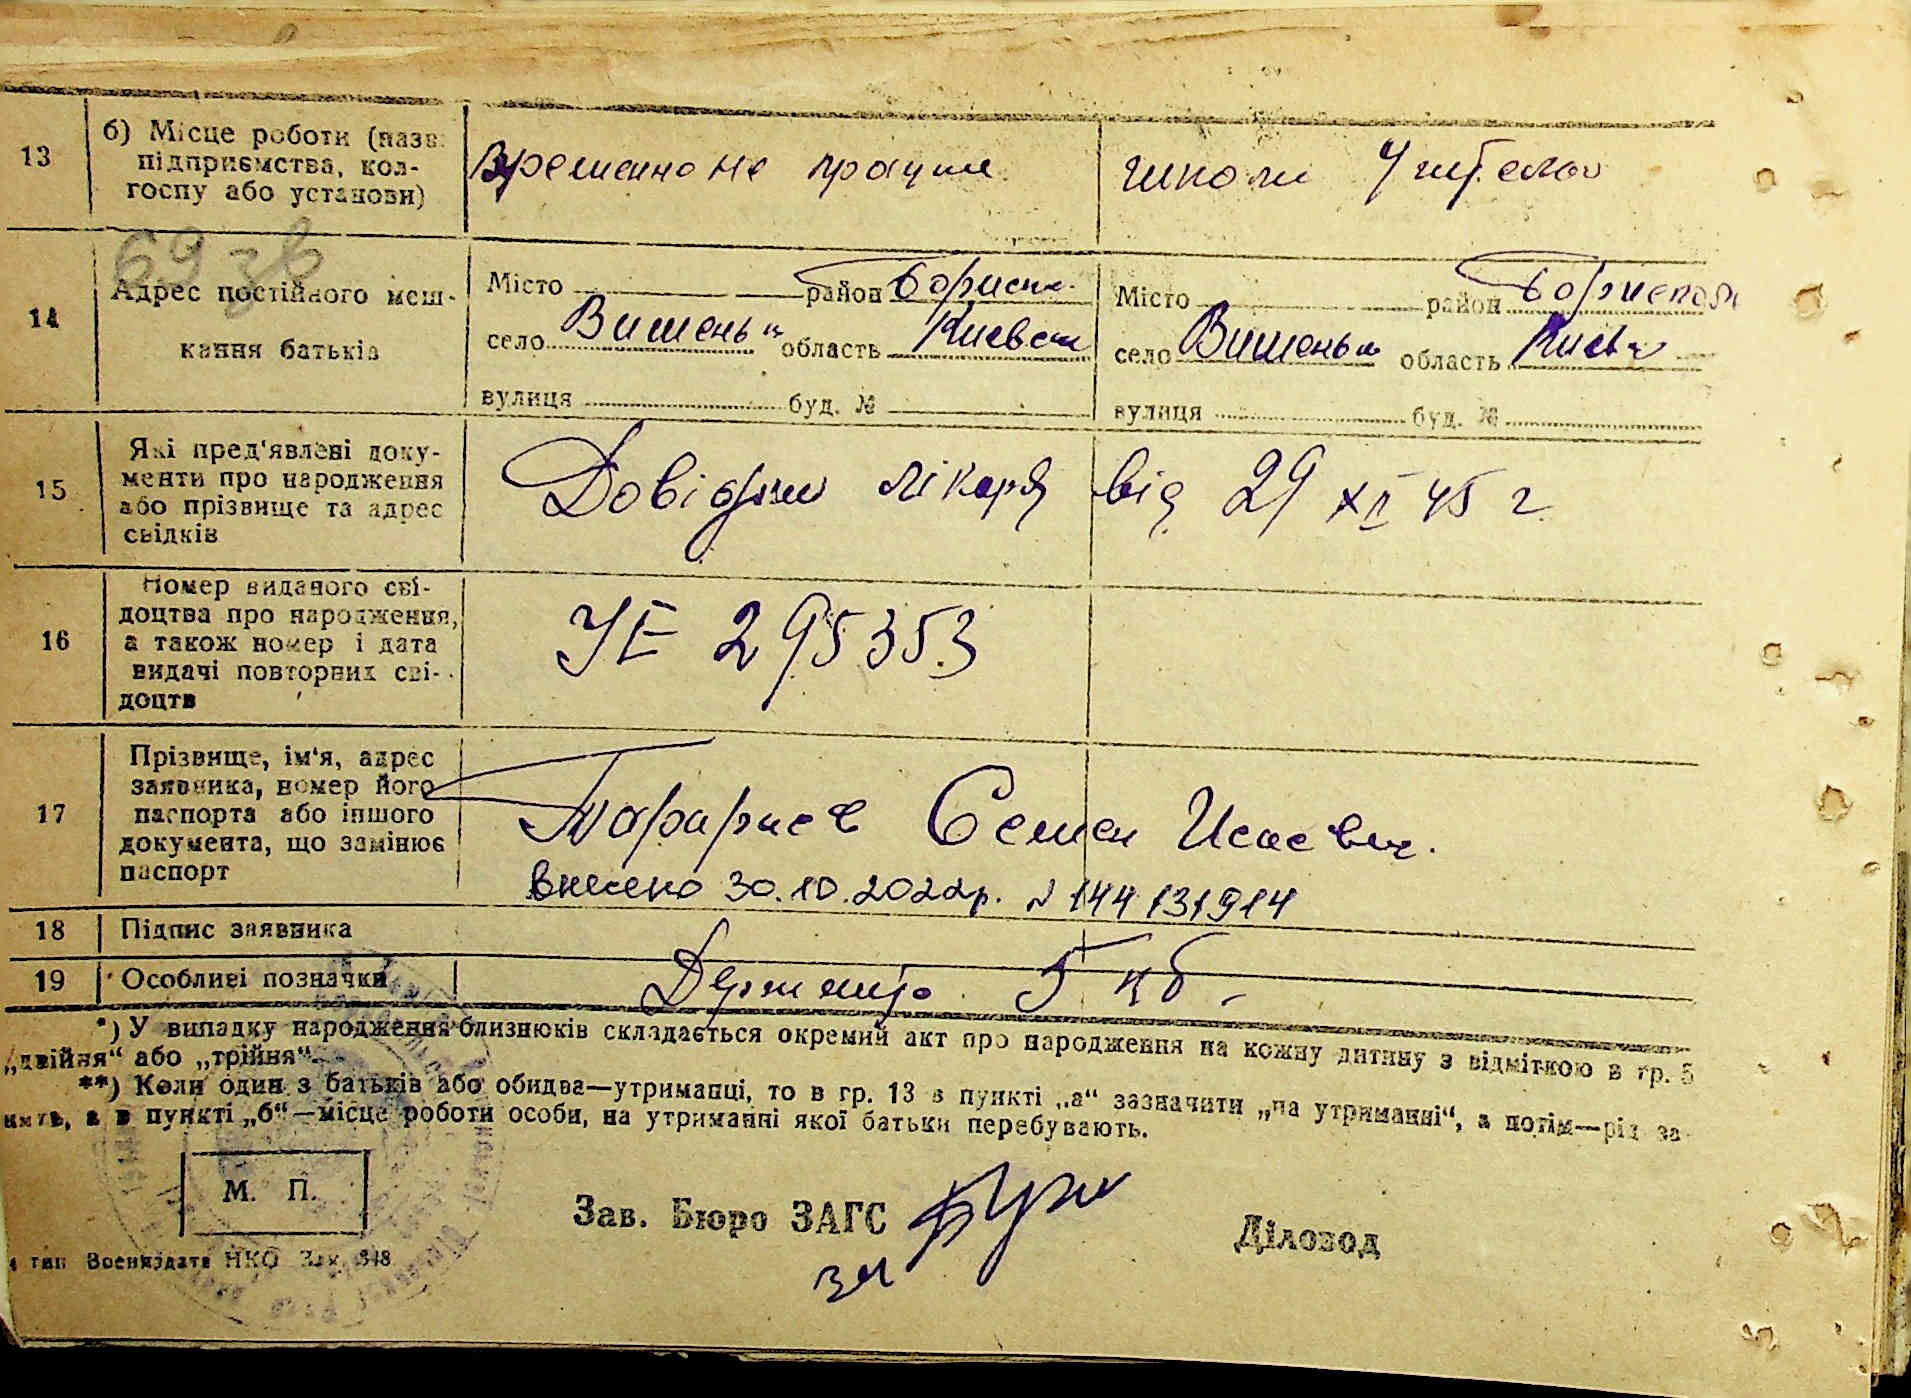 13
б) Місце роботи (назв.
підприємства, кол-
госпу або установи)
Временно не працює
школи Учитель
69 зв
14
Адрес постійного меш-
кання батьків
Місто район Борисп.
село Вишеньк область Киевск
вулиця буд. №
Місто район Бориспол
село Вишеньк область Киевс
вулиця буд. №
15
Які пред'явлені доку-
менти про народження
або прізвище та адрес
свідків
Довідки лікаря від 29 XI 45 г.
16
Номер виданого сві-
доцтва про народження,
а також номер і дата
видачі повторних сві-
доцтв
УЕ 295353
17
Прізвище, ім'я, адрес
заявника, номер його
паспорта або іншого
документа, що замінює
паспорт
Семен Исаевич.
внесено 30.10.2022р. N 144131914
18 Підпис заявника
19 Особливі позначки
5 кб.
*) У випадку народження близнюків складається окремий акт про народження на кожну дитину з відміткою в гр. 5
„двійня“ або „трійня“.
**) Коли один з батьків або обидва—утриманці, то в гр. 13 в пункті „а“ зазначити „на утриманні“, а потім—рід за-
нять, а в пункті „б“—місце роботи особи, на утриманні якої батьки перебувають.
М. П.
Зав. Бюро ЗАГС
Діловод
тип Воениздата НКО Зак. 348